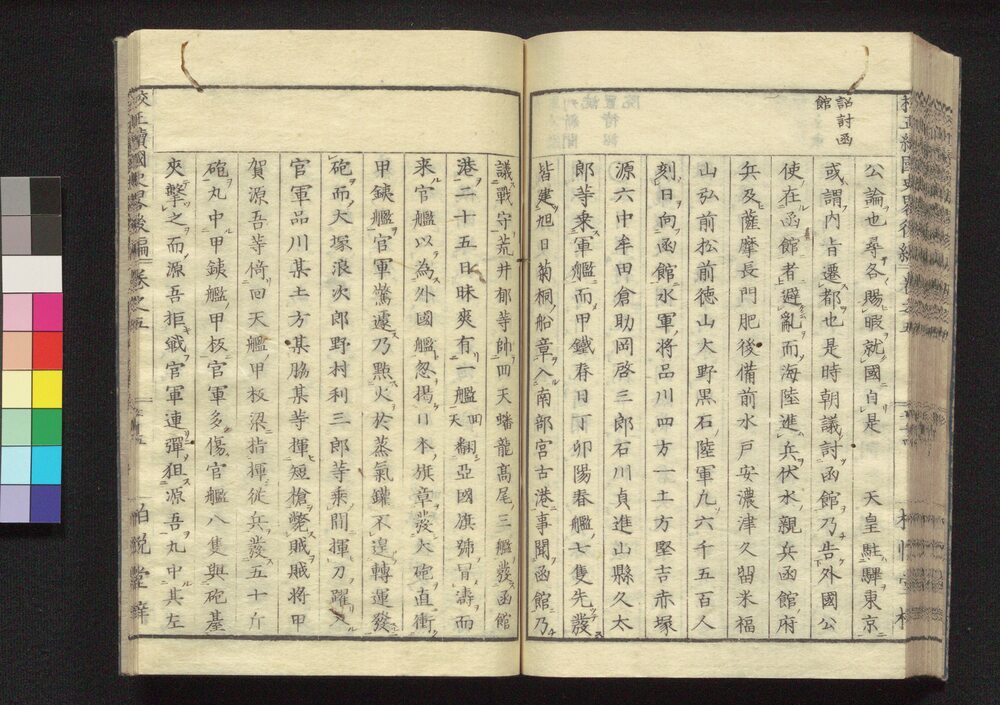 詔討函
館
公論也尋各賜暇就國自是　天皇駐驆東京
或謂内旨遷都也是時朝議討函館乃告外國公
使在函館者避亂而海陸進兵伏水親兵函館府
兵及薩摩長門肥後備前水戸安濃津久留米福
山弘前松前徳山大野黒石陸軍九六千五百人
刻日向函館水軍將品川四方一土方堅吉赤塚
源六中牟田倉助岡啓三郎石川貞進山縣久太
郎等乗軍艦而甲鐵春日丁卯陽春艦七隻先發
皆建旭日菊桐船章入南部宮古港事聞函館乃
議戰守荒井郁等帥四天蟠龍髙尾三艦發函館
港二十五日昧爽有一艦四天翻亞國旗號冒濤而
来官艦以為外國艦忽揚日本旗章發大砲直衝
甲銕艦官軍驚遽乃㸃火於蒸氣鑵不遑轉運發
砲而大塚浪次郎野村利三郎等乘間揮刀躍入
官軍品川某土方某脇某等揮短槍斃賊賊將甲
賀源吾等倚回天艦甲板梁指揮從兵發五十斤
砲丸中甲銕艦甲板官軍多傷官艦八隻與砲基
夾擊之而源吾拒戰官軍連彈狙源吾丸中其左
校正續國史畧後編　卷之五